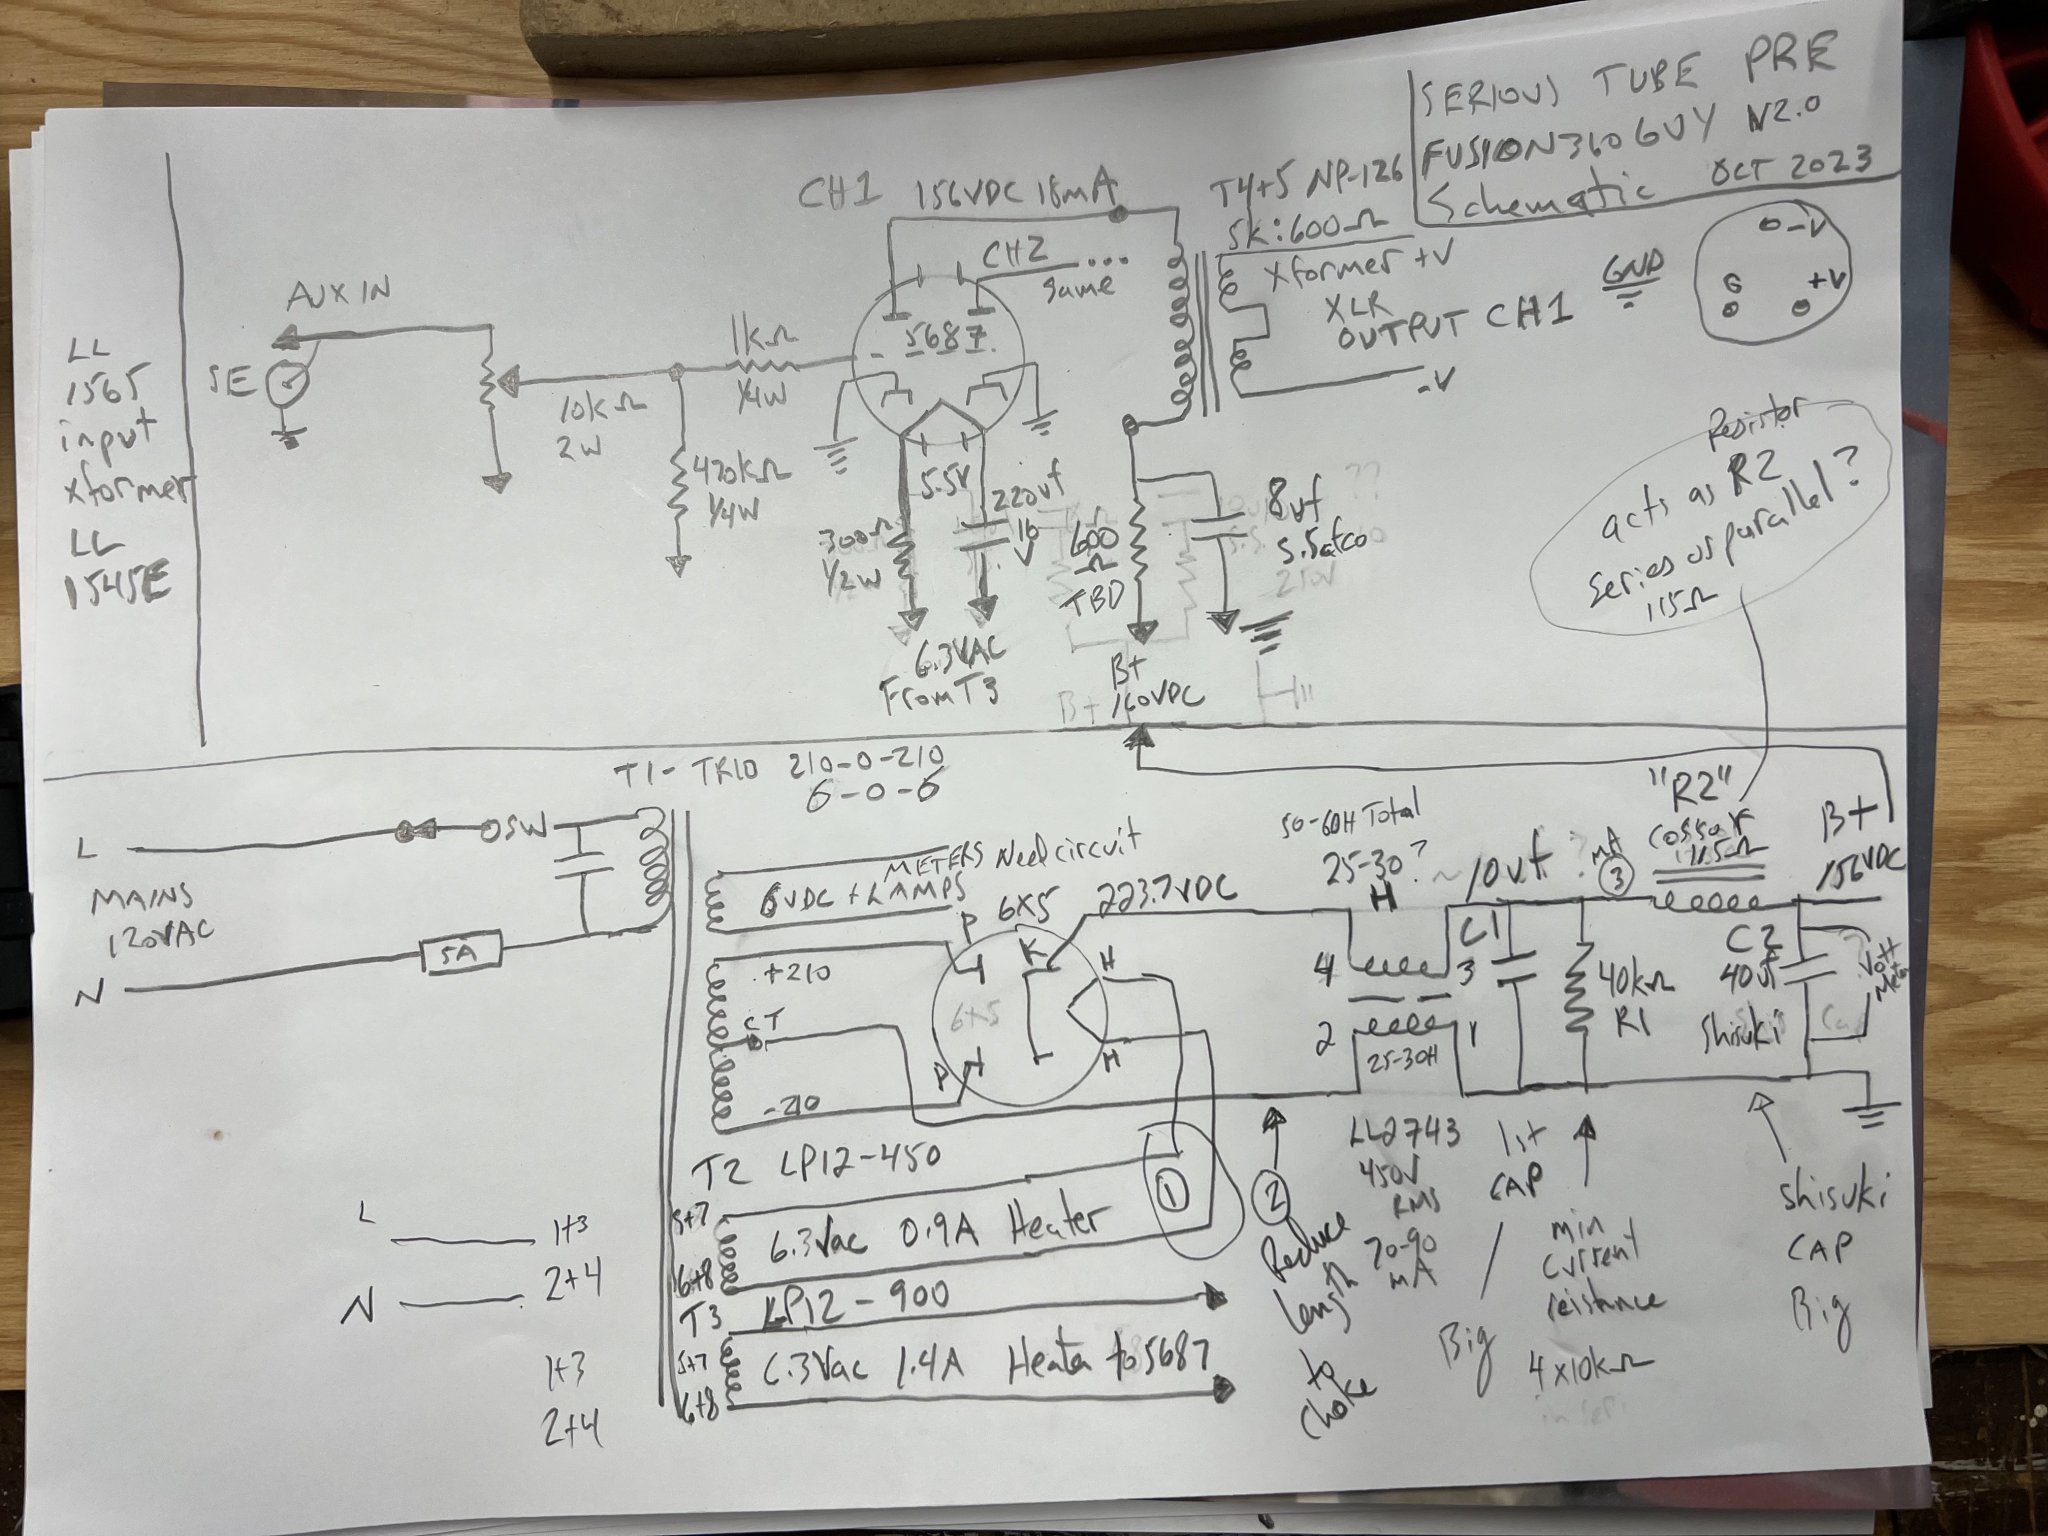 SERIOUS TUBE PRE
FUSION360GUY V2.0
Schematic OCT 2023
CH1 156VDC 18mA
T4+5 NP-126
5K:600Ω
Xformer +V
XLR
OUTPUT CH1
-V
GND
-V
G
+V
CH2
...
same
AUX IN
SE
LL
1565
input
xformer
LL
1545E
10KΩ
2W
1KΩ
1/4W
470KΩ
1/4W
5687
5.5V
300Ω
1/2W
220uf
16
V
6.3VAC
From T3
600
Ω
TBD
8uf
B+
160VDC
B+
Resistor
acts as R2
series or parallel?
115Ω
T1- TK10 210-0-210
6-0-6
L
SW
MAINS
120VAC
N
5A
METERS Need circuit
6VDC + LAMPS
P
6X5
K
H
H
P
6X5
223.7VDC
+210
CT
-210
50-60H Total
25-30?
H
4
3
2
1
25-30H
~ 10uf ?
mA
3
C1
40KΩ
R1
"R2"
Cossor
115Ω
B+
156VDC
C2
40uf
Shisuki
Volt
Meter
T2 LP12-450
5+7
6.3Vac 0.9A Heater
6+8
1
T3 LP12-900
5+7
6.3Vac 1.4A Heater to 5687
6+8
2
Reduce
length
to
choke
LL2743
450V
RMS
70-90
mA
1st
CAP
Big
min
current
reistance
4x10KΩ
Shisuki
CAP
Big
L
1+3
2+4
N
1+3
2+4